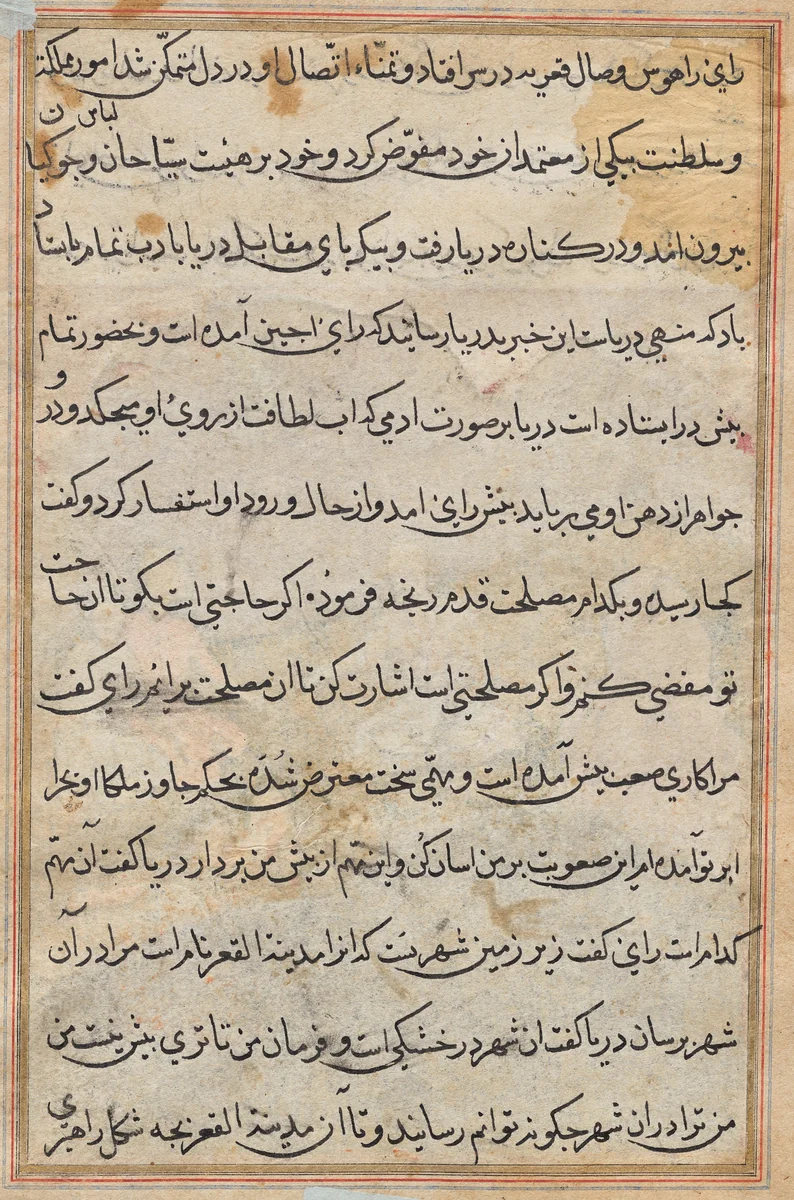 رای را هوس وصال قعریه در سر افتاد و تمنّاء اتّصال او در دل متمکّن شد امور مملکت
و سلطنت بیکی از معتمدان خود مفوّض کرد و خود بر هیئت سیّاحان و لباس جوکیان
بیرون امد و در کناره دریا رفت و بیکر بای مقابل دریا بادب تمام بایستاد
باد که منهی دریاست این خبر بدریا رسانید که رای اجین آمده است و بحضور تمام
بیش در ایستاده است دریا بر صورت ادمی که اب لطافت از روی او میجکد و در و
جواهر از دهن او می بر باید بیش رای امد و از حال ورود او استفسار کرد و کفت
کجا رسیده و بکدام مصلحت قدم رنجه فرموده اکر حاجتی است بکو تا ان حاجت
تو مفضی کنم و اکر مصلحتی است اشارت کن تا ان مصلحت برانم رای کفت
مرا کاری صعب بیش آمده است و مهمّی سخت معترض شده بحکم جاور ملکا او بحرا
ابر تو آمده ام این صعوبت بر من اسان کن و این مهم از بیش من بردار دریا کفت آن مهم
کدام است رای کفت زیر زمین شهریست که انرا مدینة القعر نام است مرا در آن
شهر برسان دریا کفت ان شهر در خشکی است و فرمان من تا تری بیش نیست من
من ترا در ان شهر جکونه توانم رسانید و تا آن مدینة القعر بجه شکل راهبری